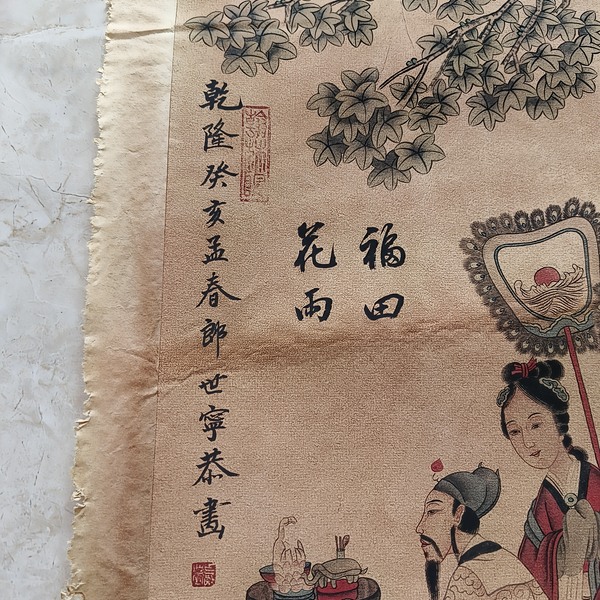 福田
花雨
乾隆癸亥孟春郎世寧恭畫